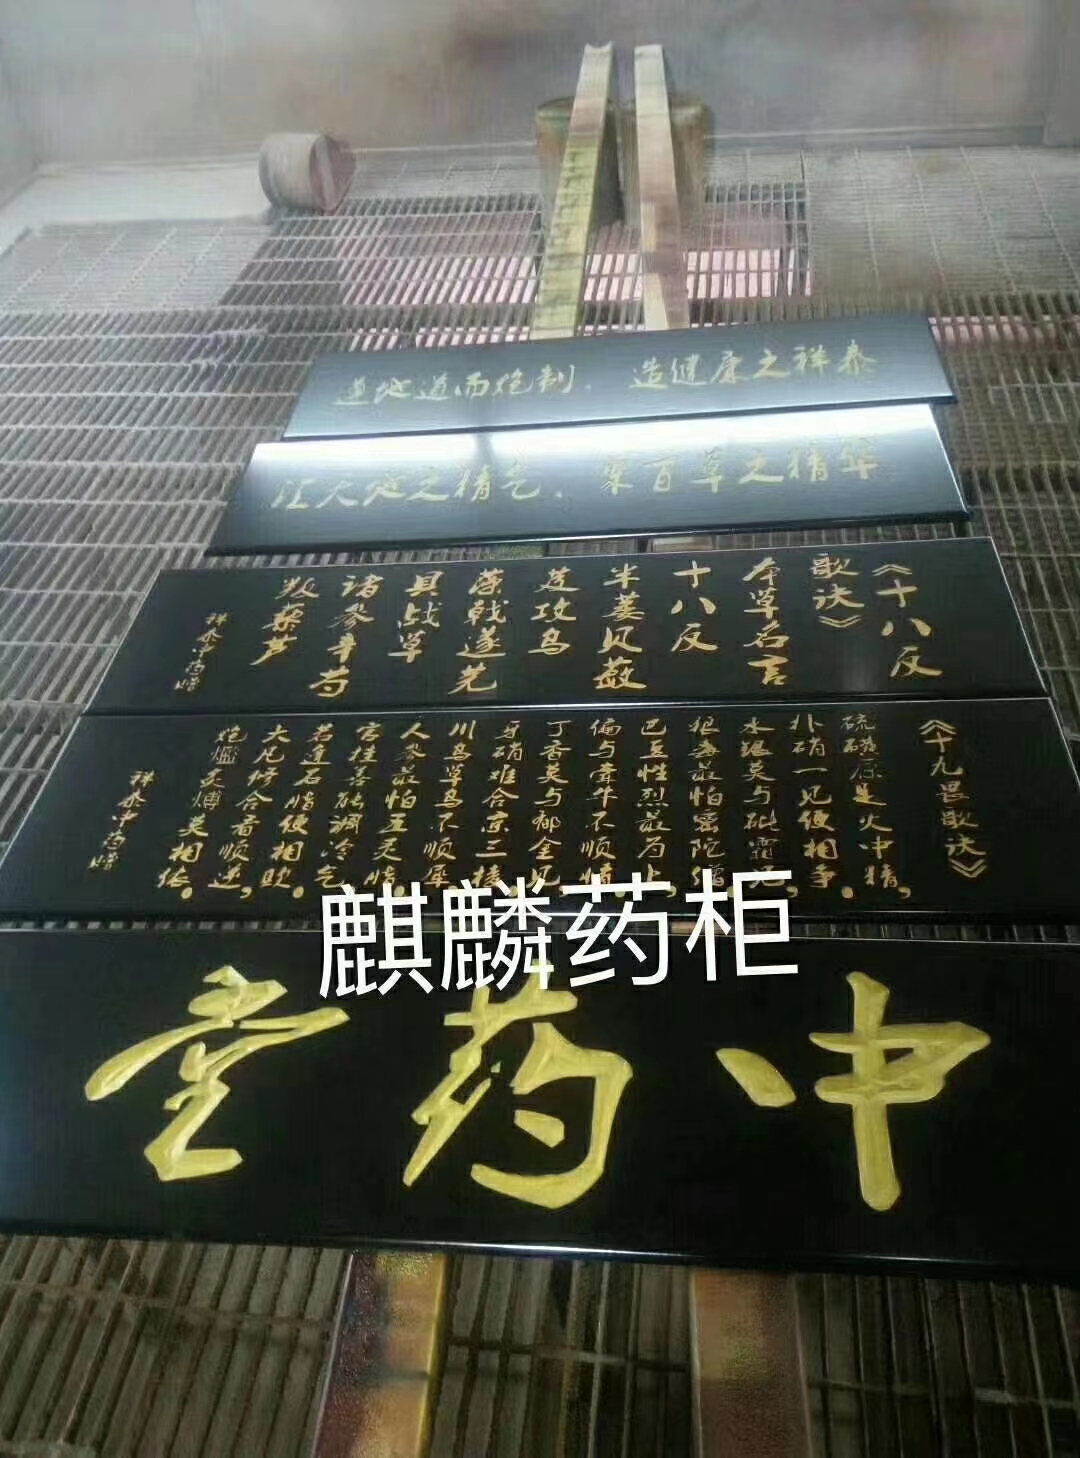 道地道而炮制，造健康之祥泰
汇天地之精气，聚百草之精华
《十八反
歌诀》
本草名言
十八反
半蒌贝蔹
芨攻乌
藻戟遂芫
具战草
诸参辛芍
叛藜芦
祥泰中药赠
《十九畏歌诀》
硫磺原是火中精，
朴硝一见便相争。
水银莫与砒霜见，
狼毒最怕密陀僧。
巴豆性烈最为上，
偏与牵牛不顺情。
丁香莫与郁金见，
牙硝难合京三棱。
川乌草乌不顺犀，
人参最怕五灵脂。
官桂善能调冷气，
若逢石脂便相欺。
大凡修合看顺逆，
炮爁炙煿莫相依。
祥泰中药赠
麒麟药柜
中药堂